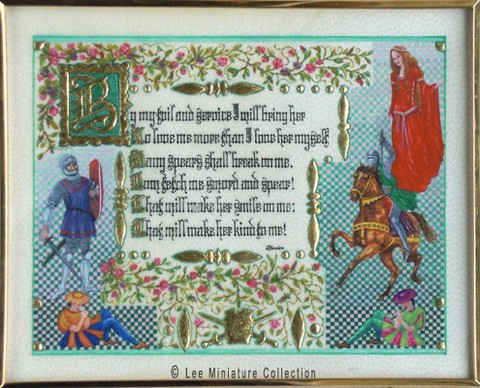 By my toil and service I will bring her
To love me more than I love her myself
Many spears shall break on me.
Now fetch me sword and spear!
That will make her smile on me;
That will make her kind to me!
© Lee Miniature Collection